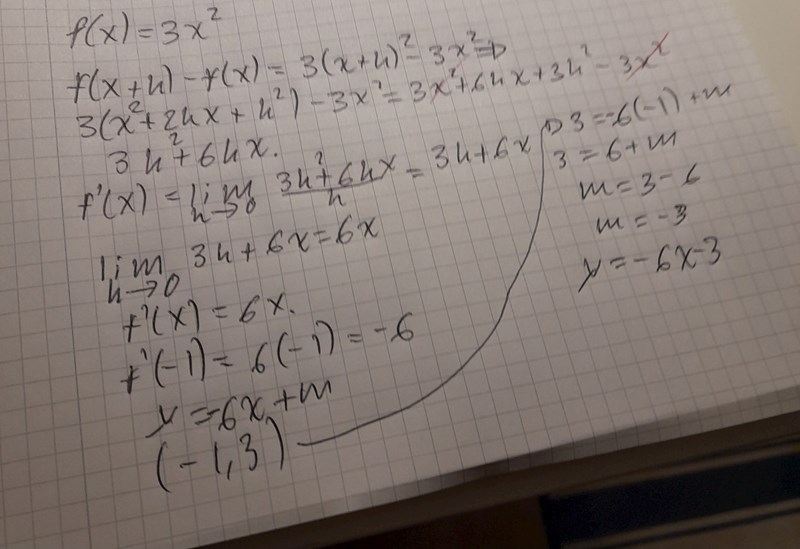 f(x) = 3x²
f(x+h) - f(x) = 3(x+h)² - 3x² ⇒
3(x² + 2hx + h²) - 3x² = 3x² + 6hx + 3h² - 3x²
3h² + 6hx.
f'(x) = lim h→0 (3h² + 6hx)/h = 3h + 6x
lim h→0 3h + 6x = 6x
f'(x) = 6x.
f'(-1) = 6(-1) = -6
y = -6x + m
(-1, 3)
⇒ 3 = -6(-1) + m
3 = 6 + m
m = 3 - 6
m = -3
y = -6x - 3